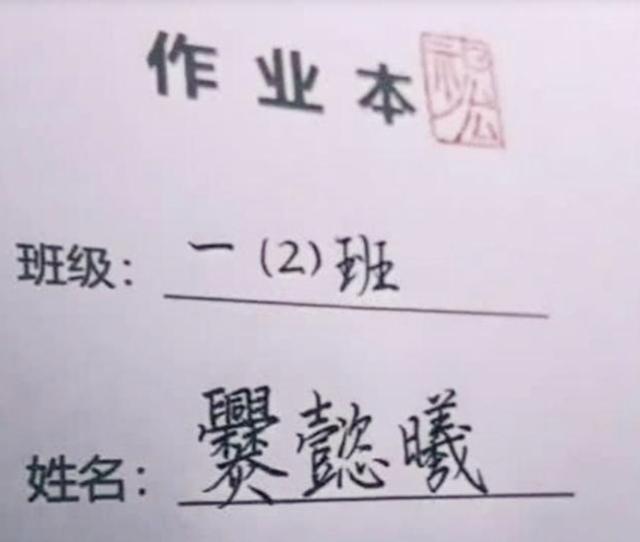 作业本
班级：一（2）班
姓名：爨懿曦